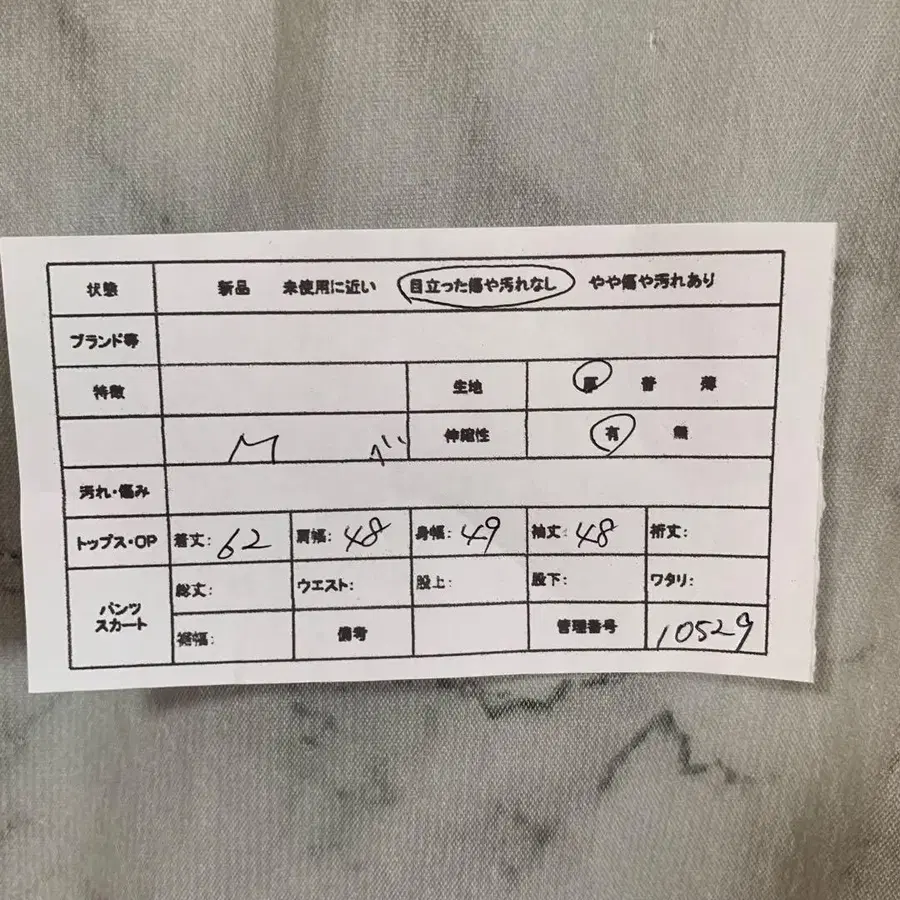 状態 新品 未使用に近い 目立った傷や汚れなし やや傷や汚れあり
ブランド等
特徴 生地 厚 普 薄
M ベ 伸縮性 有 無
汚れ・傷み
トップス・OP 着丈: 62 肩幅: 48 身幅: 49 袖丈: 48 裄丈:
パンツ スカート 総丈: ウエスト: 股上: 股下: ワタリ:
裾幅: 備考 管理番号 10529